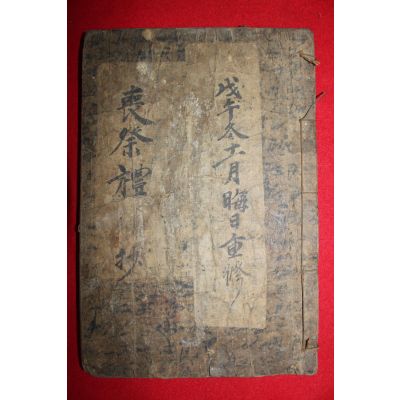 戊午冬十一月晦日重修
喪祭禮抄